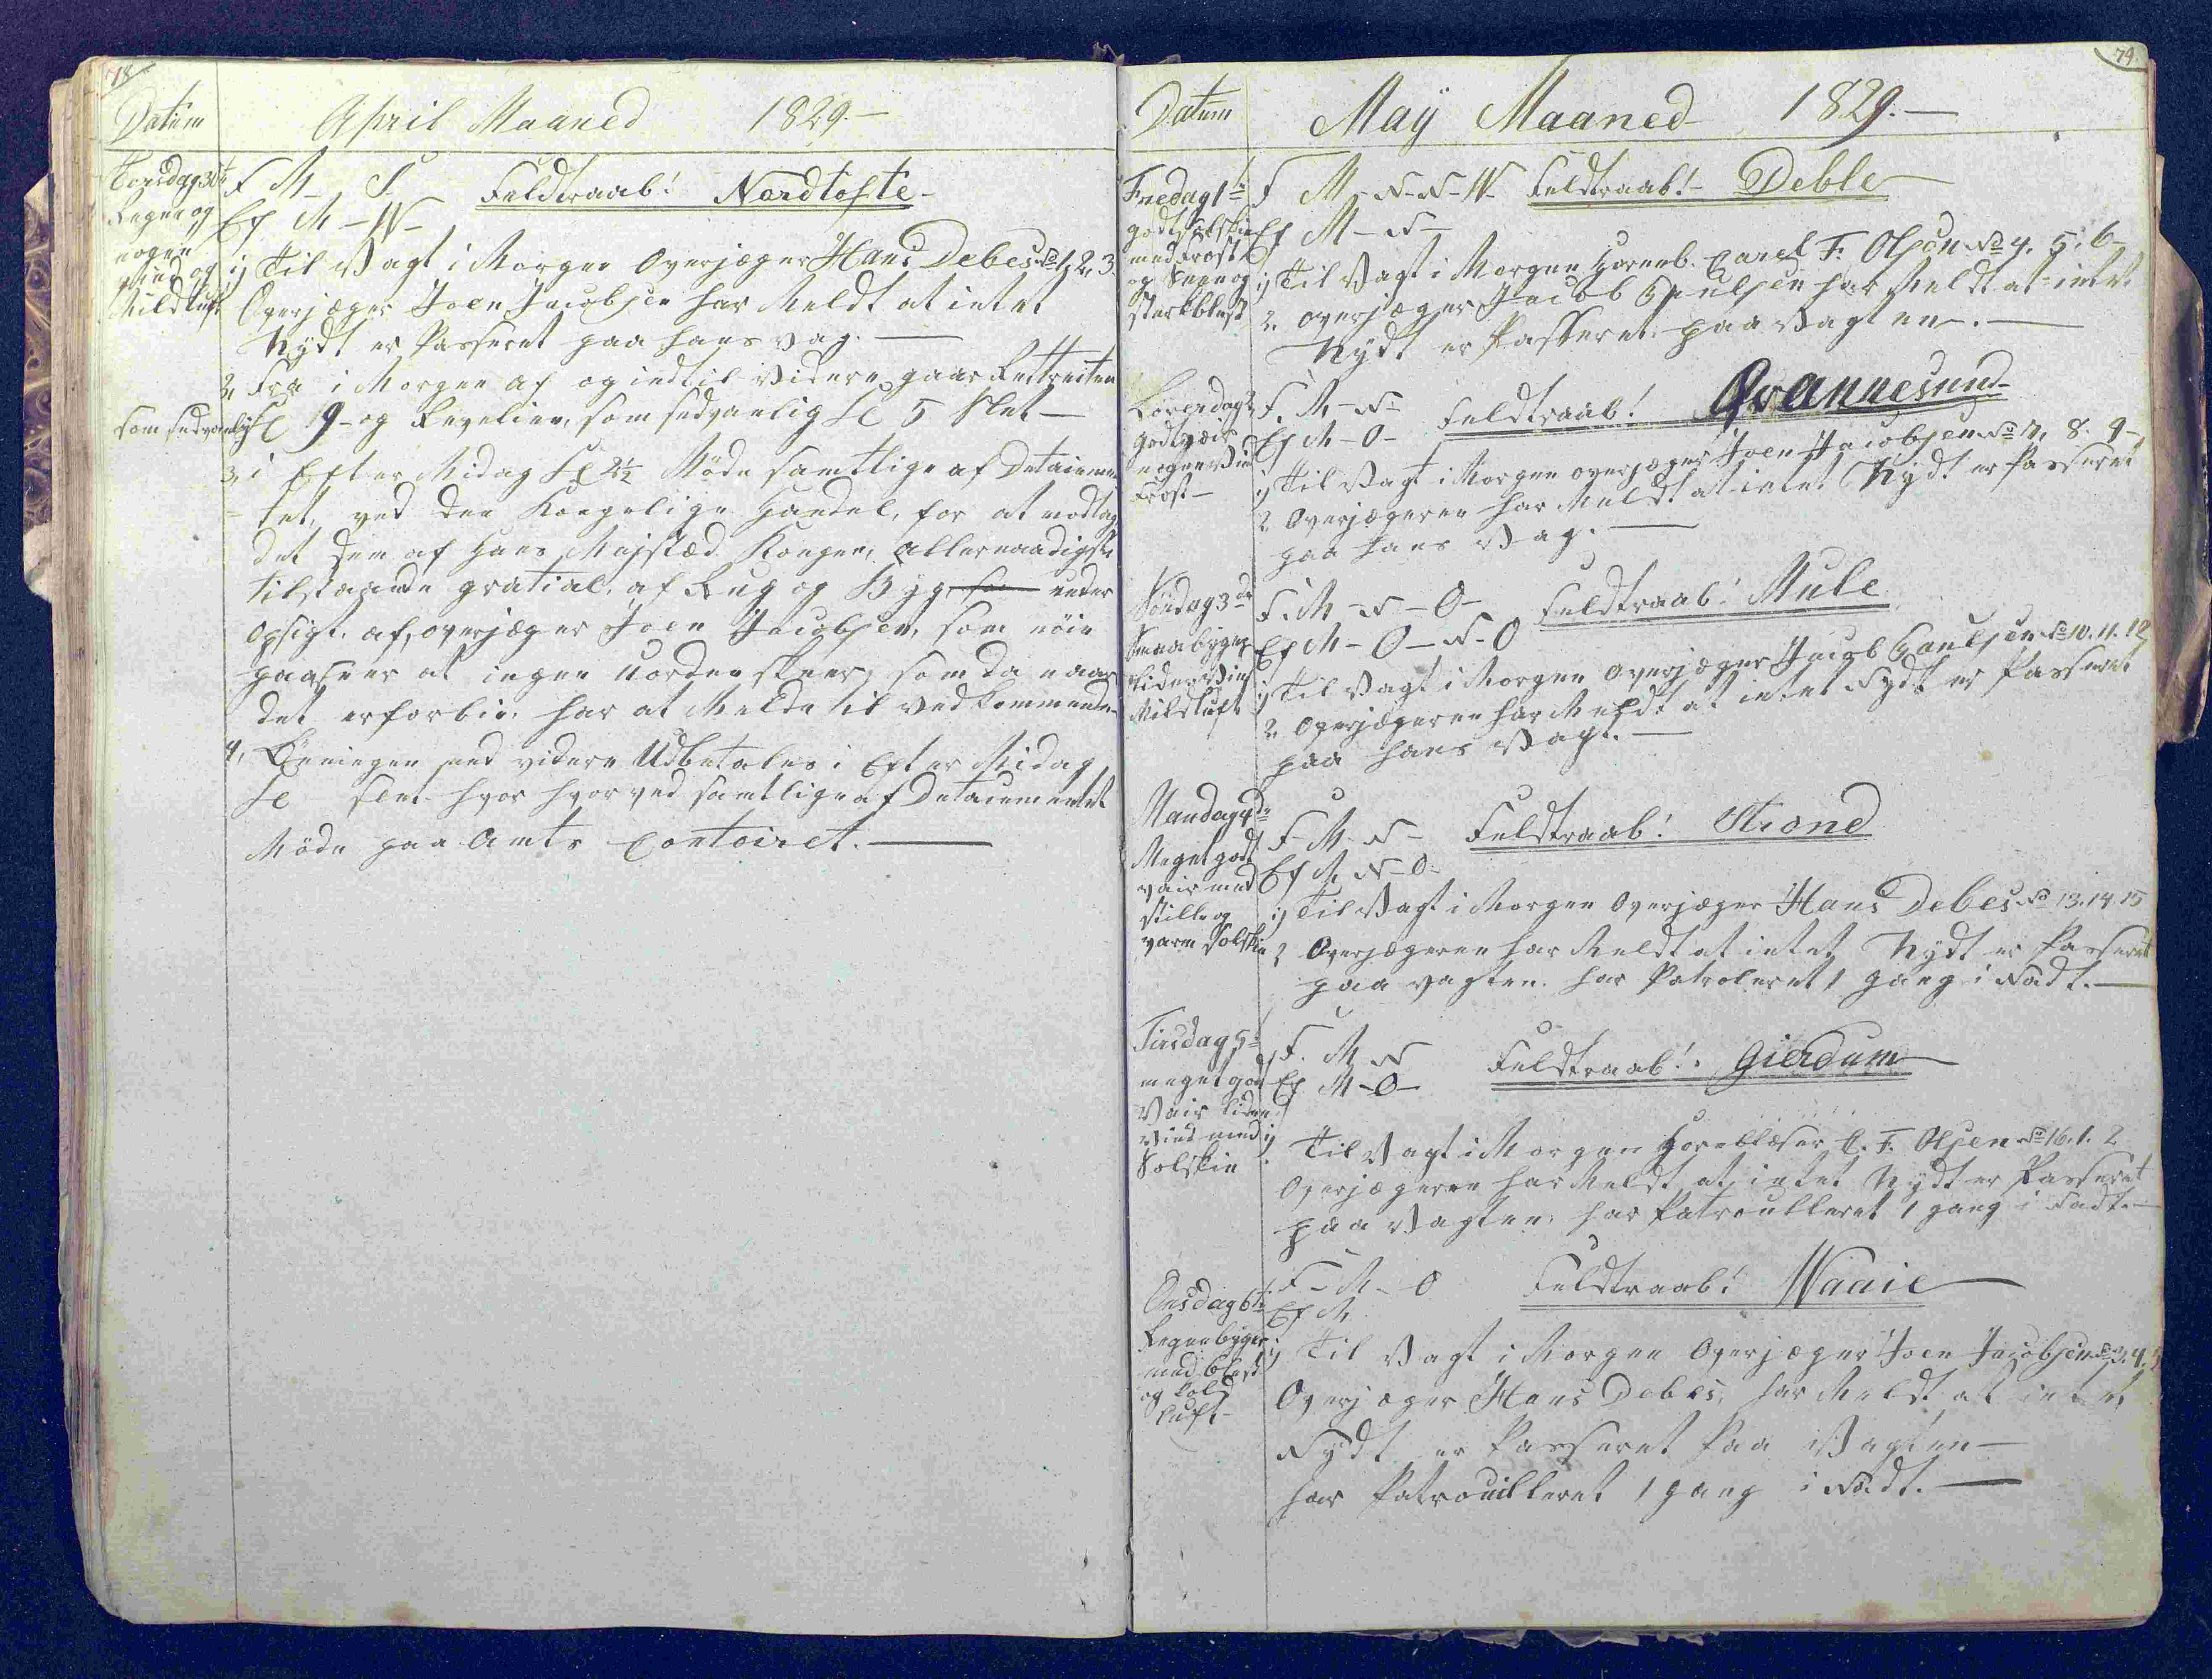 78
Datum
April Maaned 1829.-
Torsdag 30te
Regn og
nogen
Vind og
Mild Luft
F M - S Feldtraab! Nordtofte -
Ef M - W -
1) Til Vagt i Morgen Overjæger Hans Debes No 1, 2, 3
Overjæger Joen Jacobsen har Meldt at intet
Nÿdt er Passeret paa hans Vag. -
2, Fra i Morgen af og indtil Videre gaar Rettreiten
som sedvanlig Kl 9 - og Revelien, som sedvanlig Kl 5 Slet -
3, i Efter Midag Kl 2½ Möde samtlige af Detaciemen
tet, ved den Kongelige Handel, for at modtag
det dem af Hans Majstæd Kongen, allernaadigst
tilstaaende gratial, af Rug og Byg, under
Opsigt af, overjæger Joen Jacobsen, som nöie
paaseer at ingen uorden skeer, som da naar
det er forbie, har at Melde til vedkommende
4, Löningen med videre Udbetales i Efter Midag
Kl slet - hvor hvorved samtlige af Detaciementet
Möde paa Amts Contoiret. -
79
Datum
Maÿ Maaned 1829. -
Fredag 1te
godt solskin
med Frost
og Snee og
stærk blæst
F M - N - N - W - Feldtraab! - Deble
Ef M - N -
1) Til Vagt i Morgen Hornb. Carel F. Olsen No 4. 5. 6 -
2, overjæger Jacob Poulsen har Meldt at intet
Nÿdt er Passeret paa Vagten. -
Löverdag 2
godt vair
nogen Vind
Frost -
F. M - N - Feldtraab! Qvannesund -
Ef M - O -
1) Til Vagt i Morgen overjæger Joen Jacobsen No 7, 8. 9 -
2, Overjægeren har Meldt at intet Nÿdt er Passeret
paa hans Vag. -
Söndag 3de
Smaa byger
liden Vind
Mild Luft
F. M - N - O - Feldtraab! Mule
Ef M - O - N - O
1) Til Vagt i Morgen overjæger Jacob Poulsen No 10. 11. 12
2, Overjægeren har Meldt at intet Nydt er Passeret
paa hans Vagt. -
Mandag 4de
Meget godt
vair med
stille og
varm Solskin
F M - N - Feldtraab! Strond
Ef M N - O -
1) Til Vagt i Morgen Overjæger Hans Debes No 13. 14 15
2 Overjægeren har Meldt at intet Nÿdt er Passeret
paa vagten. har Patroleret 1 gang i Nadt. -
Tirsdag 5te
meget godt
Vair liden
Vind med
Solskin
F. M N Feldtraab! Gierdum -
Ef M - O -
1) Til Vagt i Morgen Hornblæser C. F. Olsen No 16. 1. 2
Overjægeren har Meldt at intet Nÿdt er Passeret
paa Vagten, har Patroulleret 1 gang i Nadt. -
Onsdag 6te
Regnbyger
med blæst
og Kold
Luft -
F - M - O Feldtraab! Waaie -
Ef M
1) Til Vagt i Morgen Overjæger Joen Jacobsen No 3. 4. 5
Overjæger Hans Debes, har Meldt at intet
Nydt er Passeret Paa Vagten -
har Patrouilleret 1 gang i Nadt. -